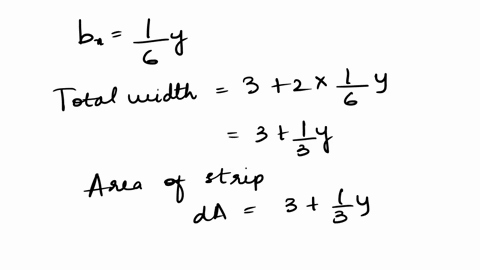 bₓ = 1/6 y
Total width = 3 + 2 × 1/6 y
= 3 + 1/3 y
Area of strip
dA = 3 + 1/3 y